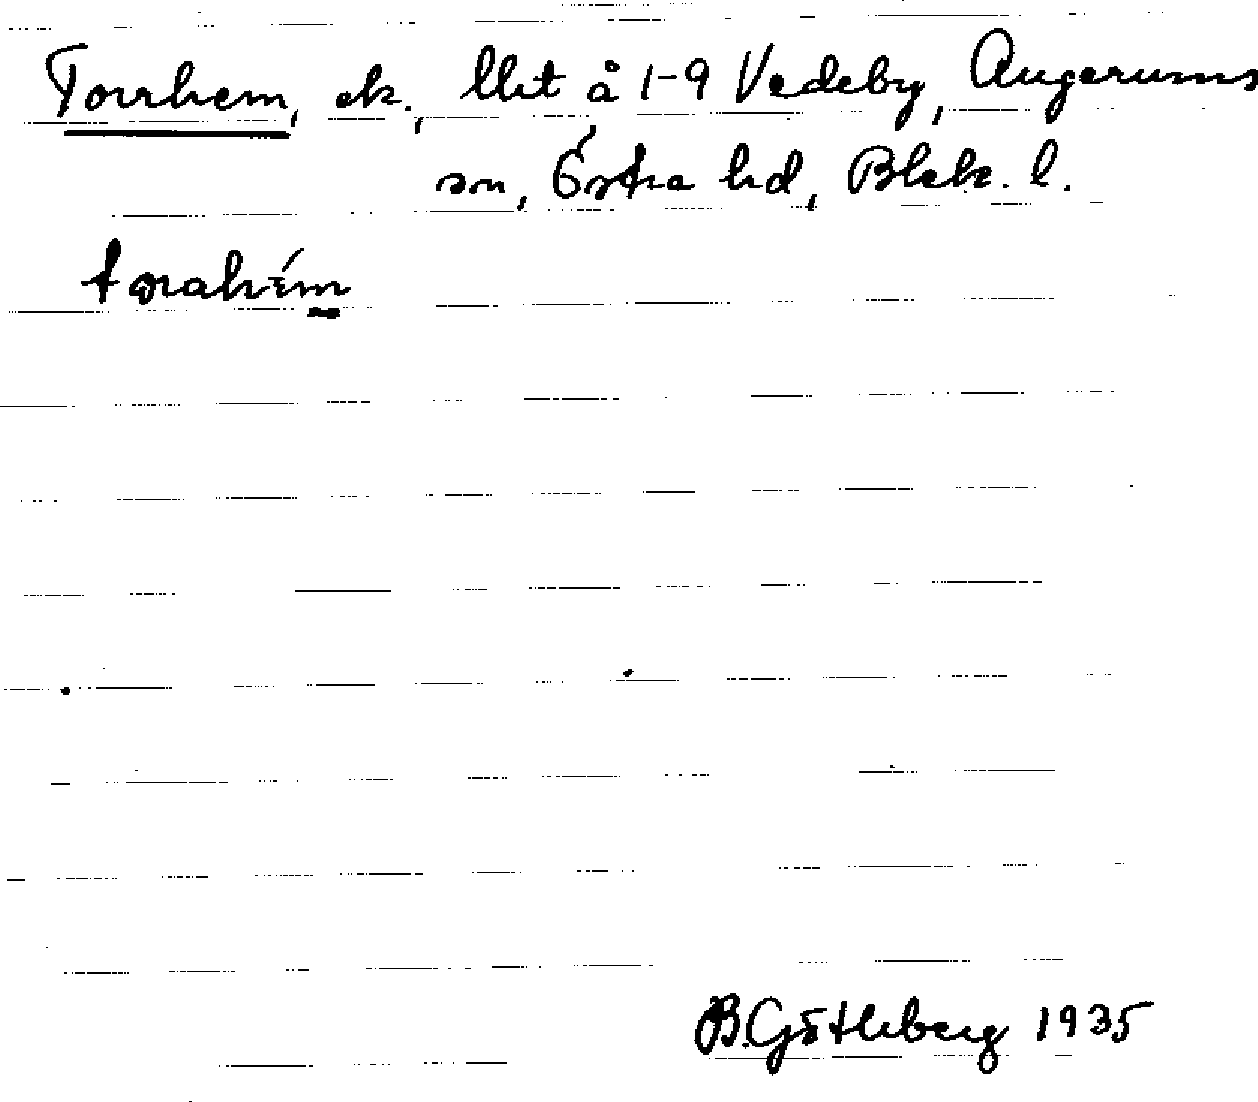 Torrhem, ek., Utet å 1-9 Vedeby, Augerums
sn, Östra hd, Blek. l.
B. Götleberg 1935